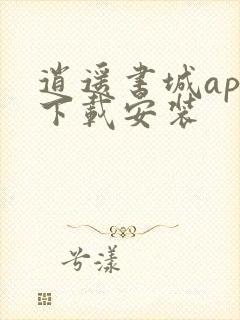 逍遥书城ap
下载安装
兮漾